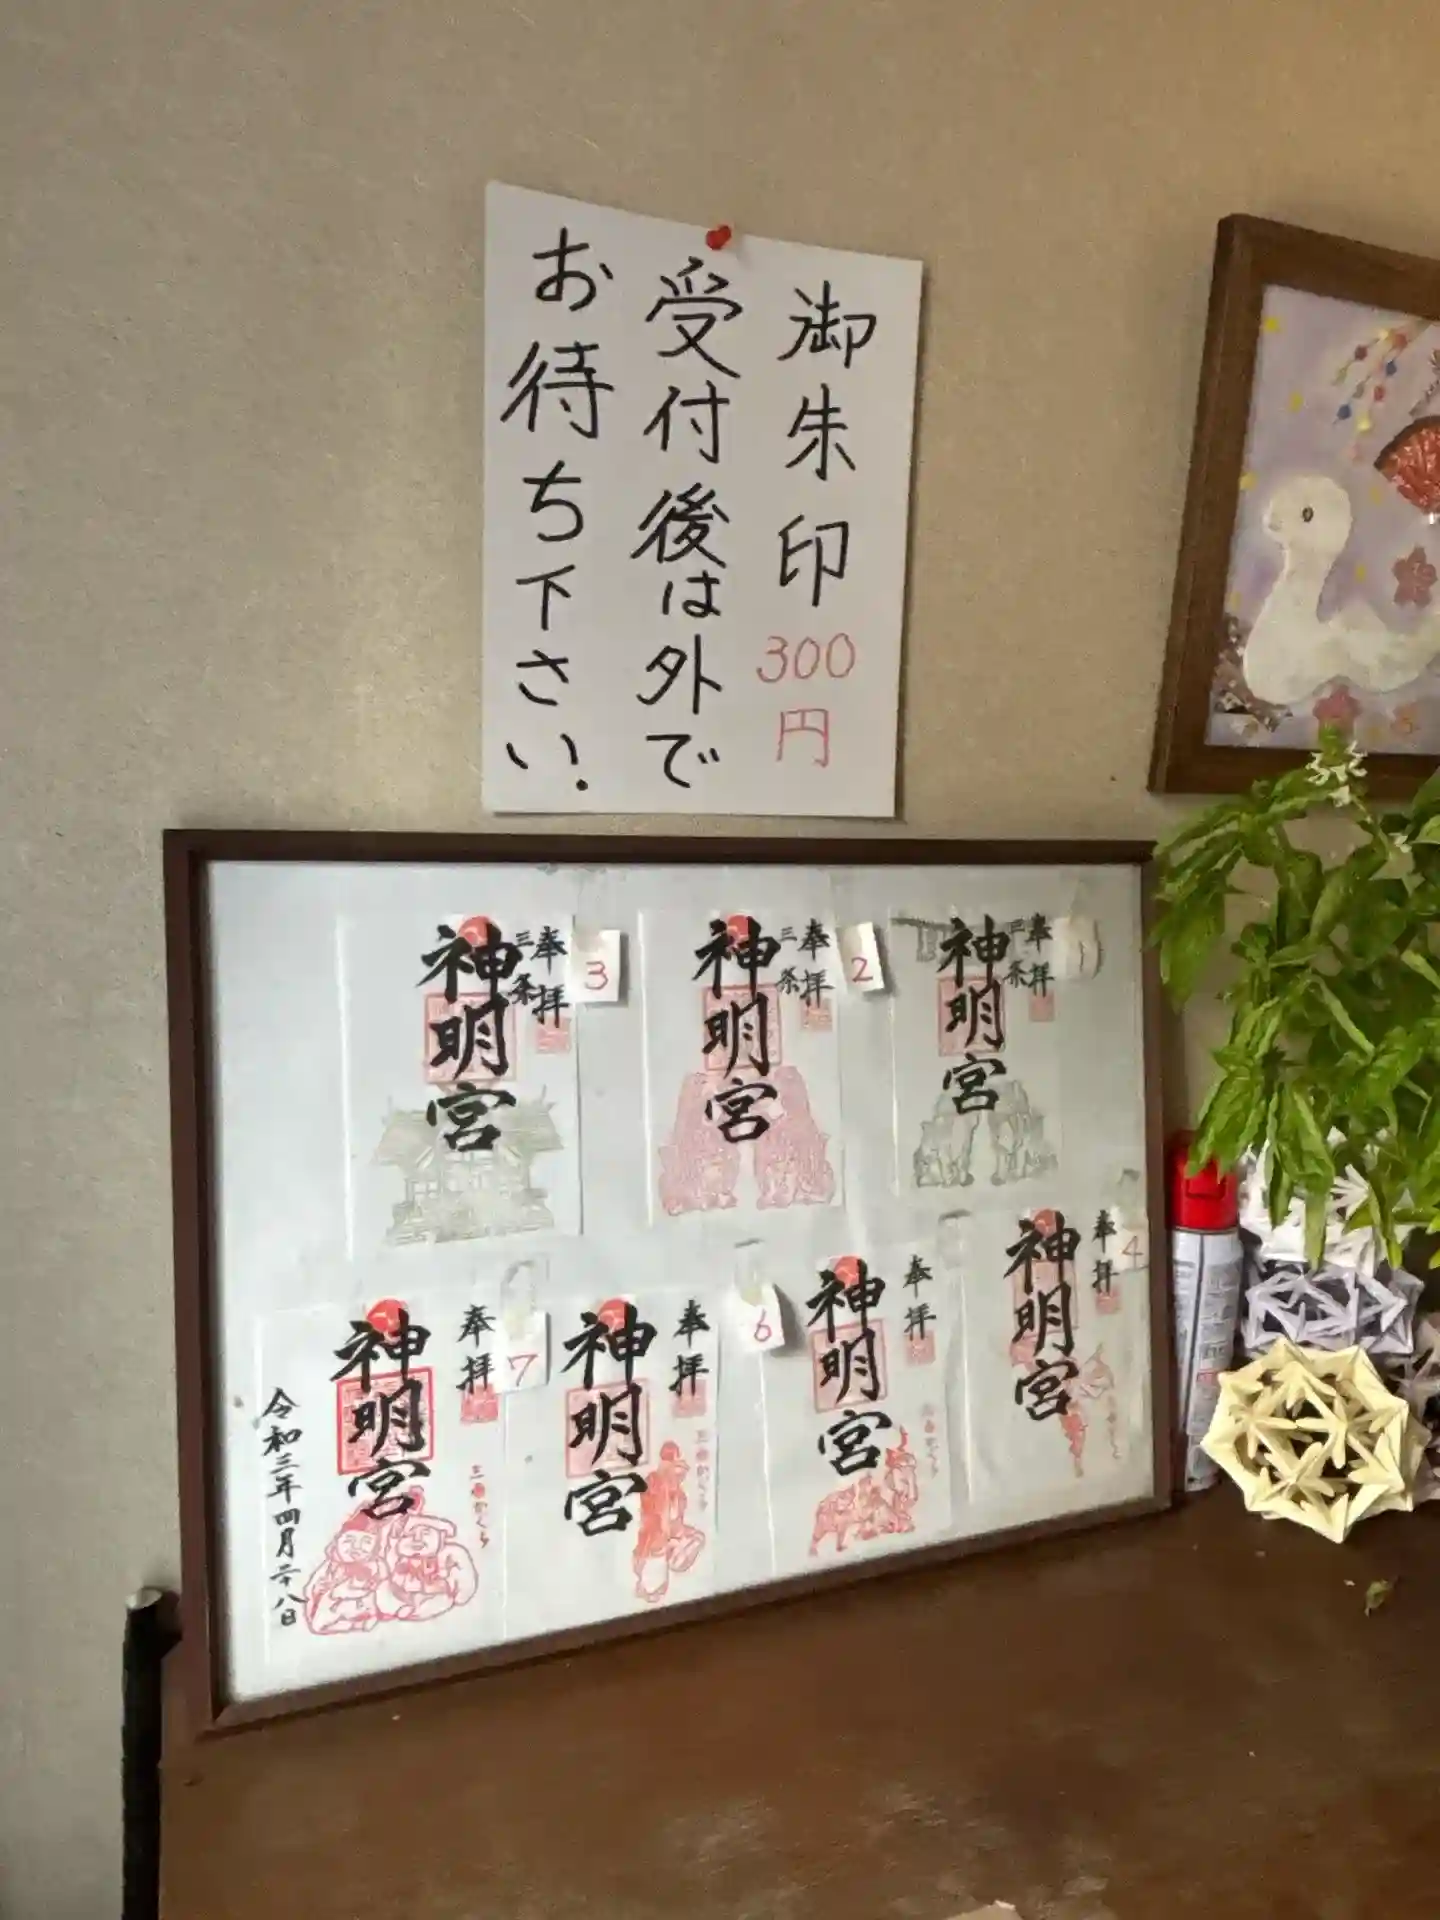 御朱印300円
受付後は外で
お待ち下さい.
1
奉拝
三条
神明宮
2
奉拝
三条
神明宮
3
奉拝
三条
神明宮
4
奉拝
神明宮
奉拝
神明宮
6
奉拝
神明宮
7
奉拝
神明宮
令和三年四月二十八日